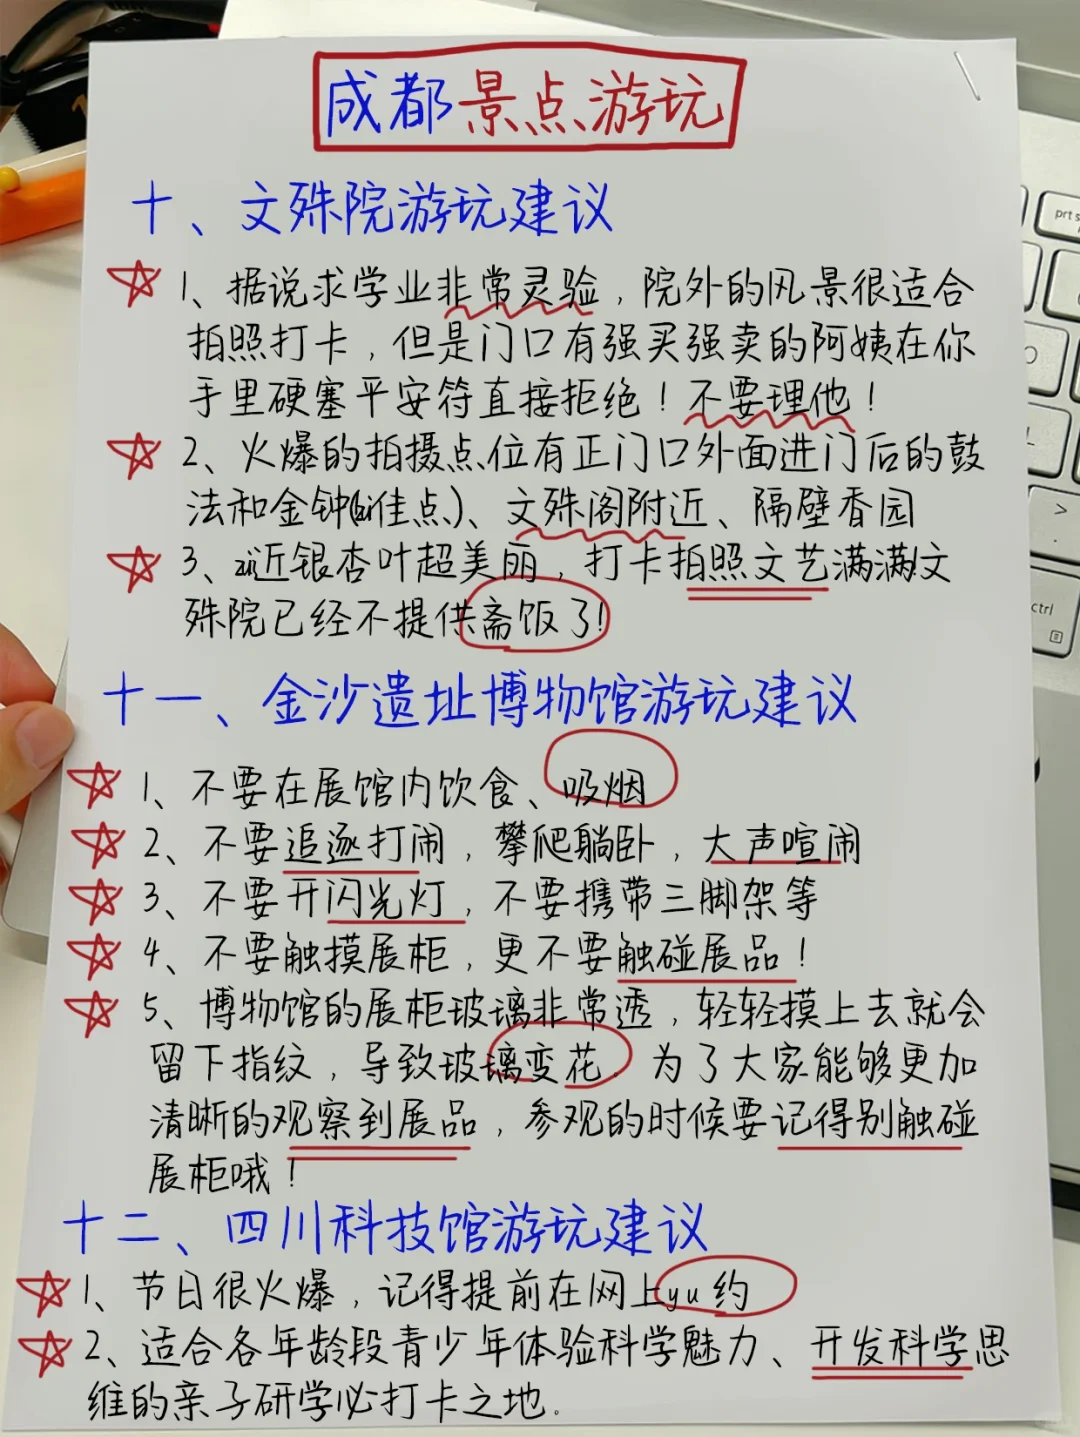 成都景点游玩
十、文殊院游玩建议
1、据说求学业非常灵验，院外的风景很适合
拍照打卡，但是门口有强买强卖的阿姨在你
手里硬塞平安符直接拒绝！不要理他！
2、火爆的拍摄点位有正门口外面进门后的鼓
法和金钟(bi佳点)、文殊阁附近、隔壁香园
3、zui近银杏叶超美丽，打卡拍照文艺满满!文
殊院已经不提供斋饭了!
十一、金沙遗址博物馆游玩建议
1、不要在展馆内饮食、吸烟
2、不要追逐打闹，攀爬躺卧，大声喧闹
3、不要开闪光灯，不要携带三脚架等
4、不要触摸展柜，更不要触碰展品！
5、博物馆的展柜玻璃非常透，轻轻摸上去就会
留下指纹，导致玻璃变花。为了大家能够更加
清晰的观察到展品，参观的时候要记得别触碰
展柜哦！
十二、四川科技馆游玩建议
1、节日很火爆，记得提前在网上yu约
2、适合各年龄段青少年体验科学魅力、开发科学思
维的亲子研学必打卡之地.
prt s
ctrl